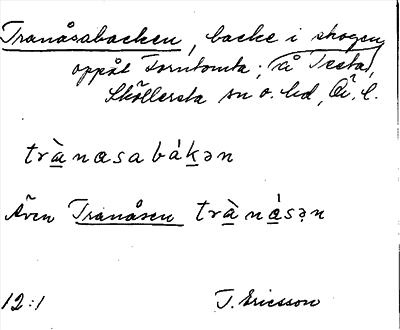 Tranåsabacken, backe i skogen
oppåt Torntomta; å Testa,
Sköllersta sn o. hd, Ör. l.
trànasabákən
Även Tranåsen trànásən
12:1 T. Ericsson